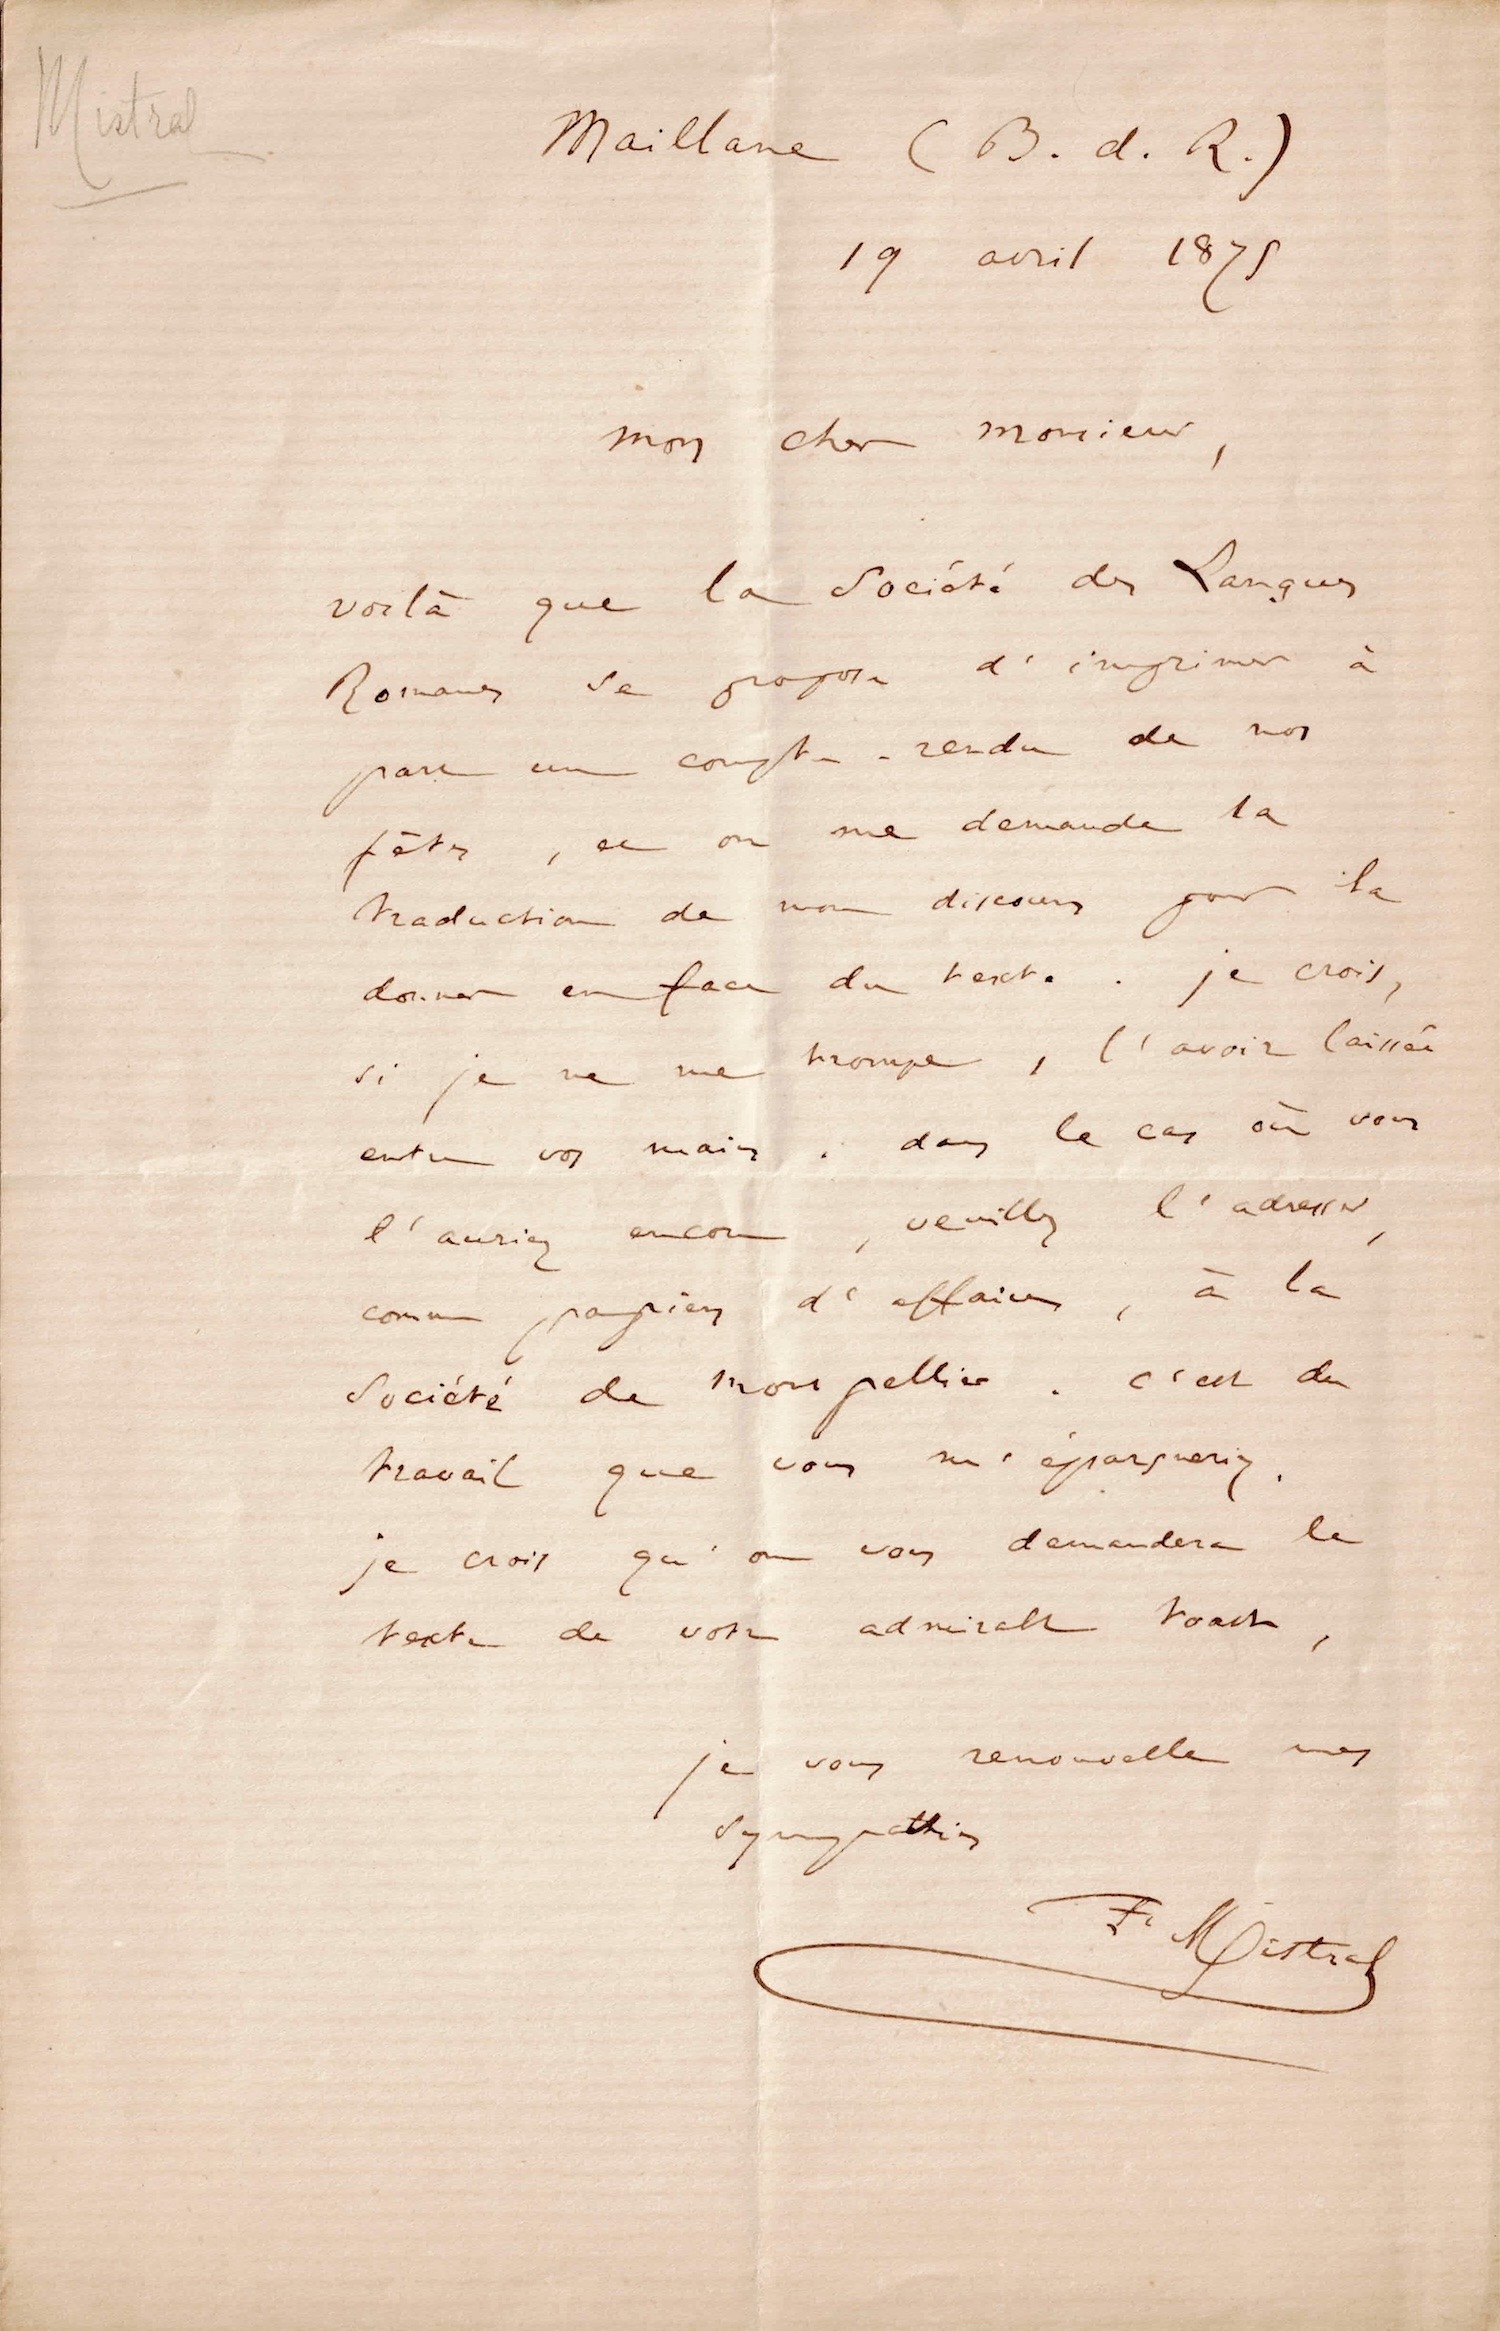 Mistral
Maillane (B. d. R.)
19 avril 1875
mon cher monsieur,
voilà que la Société des Langues
Romanes se propose d'imprimer à
part un compte-rendu de nos
fêtes, et on me demande la
traduction de mon discours pour la
donner en face du texte. je crois,
si je ne me trompe, l'avoir laissée
entre vos mains. dans le cas où vous
l'auriez encore, veuillez l'adresser,
comme papiers d'affaires, à la
Société de Montpellier. c'est du
travail que vous m'épargneriez.
je crois qu'on vous demandera le
texte de votre admirable toast,
je vous renouvelle mes
sympathies
F. Mistral